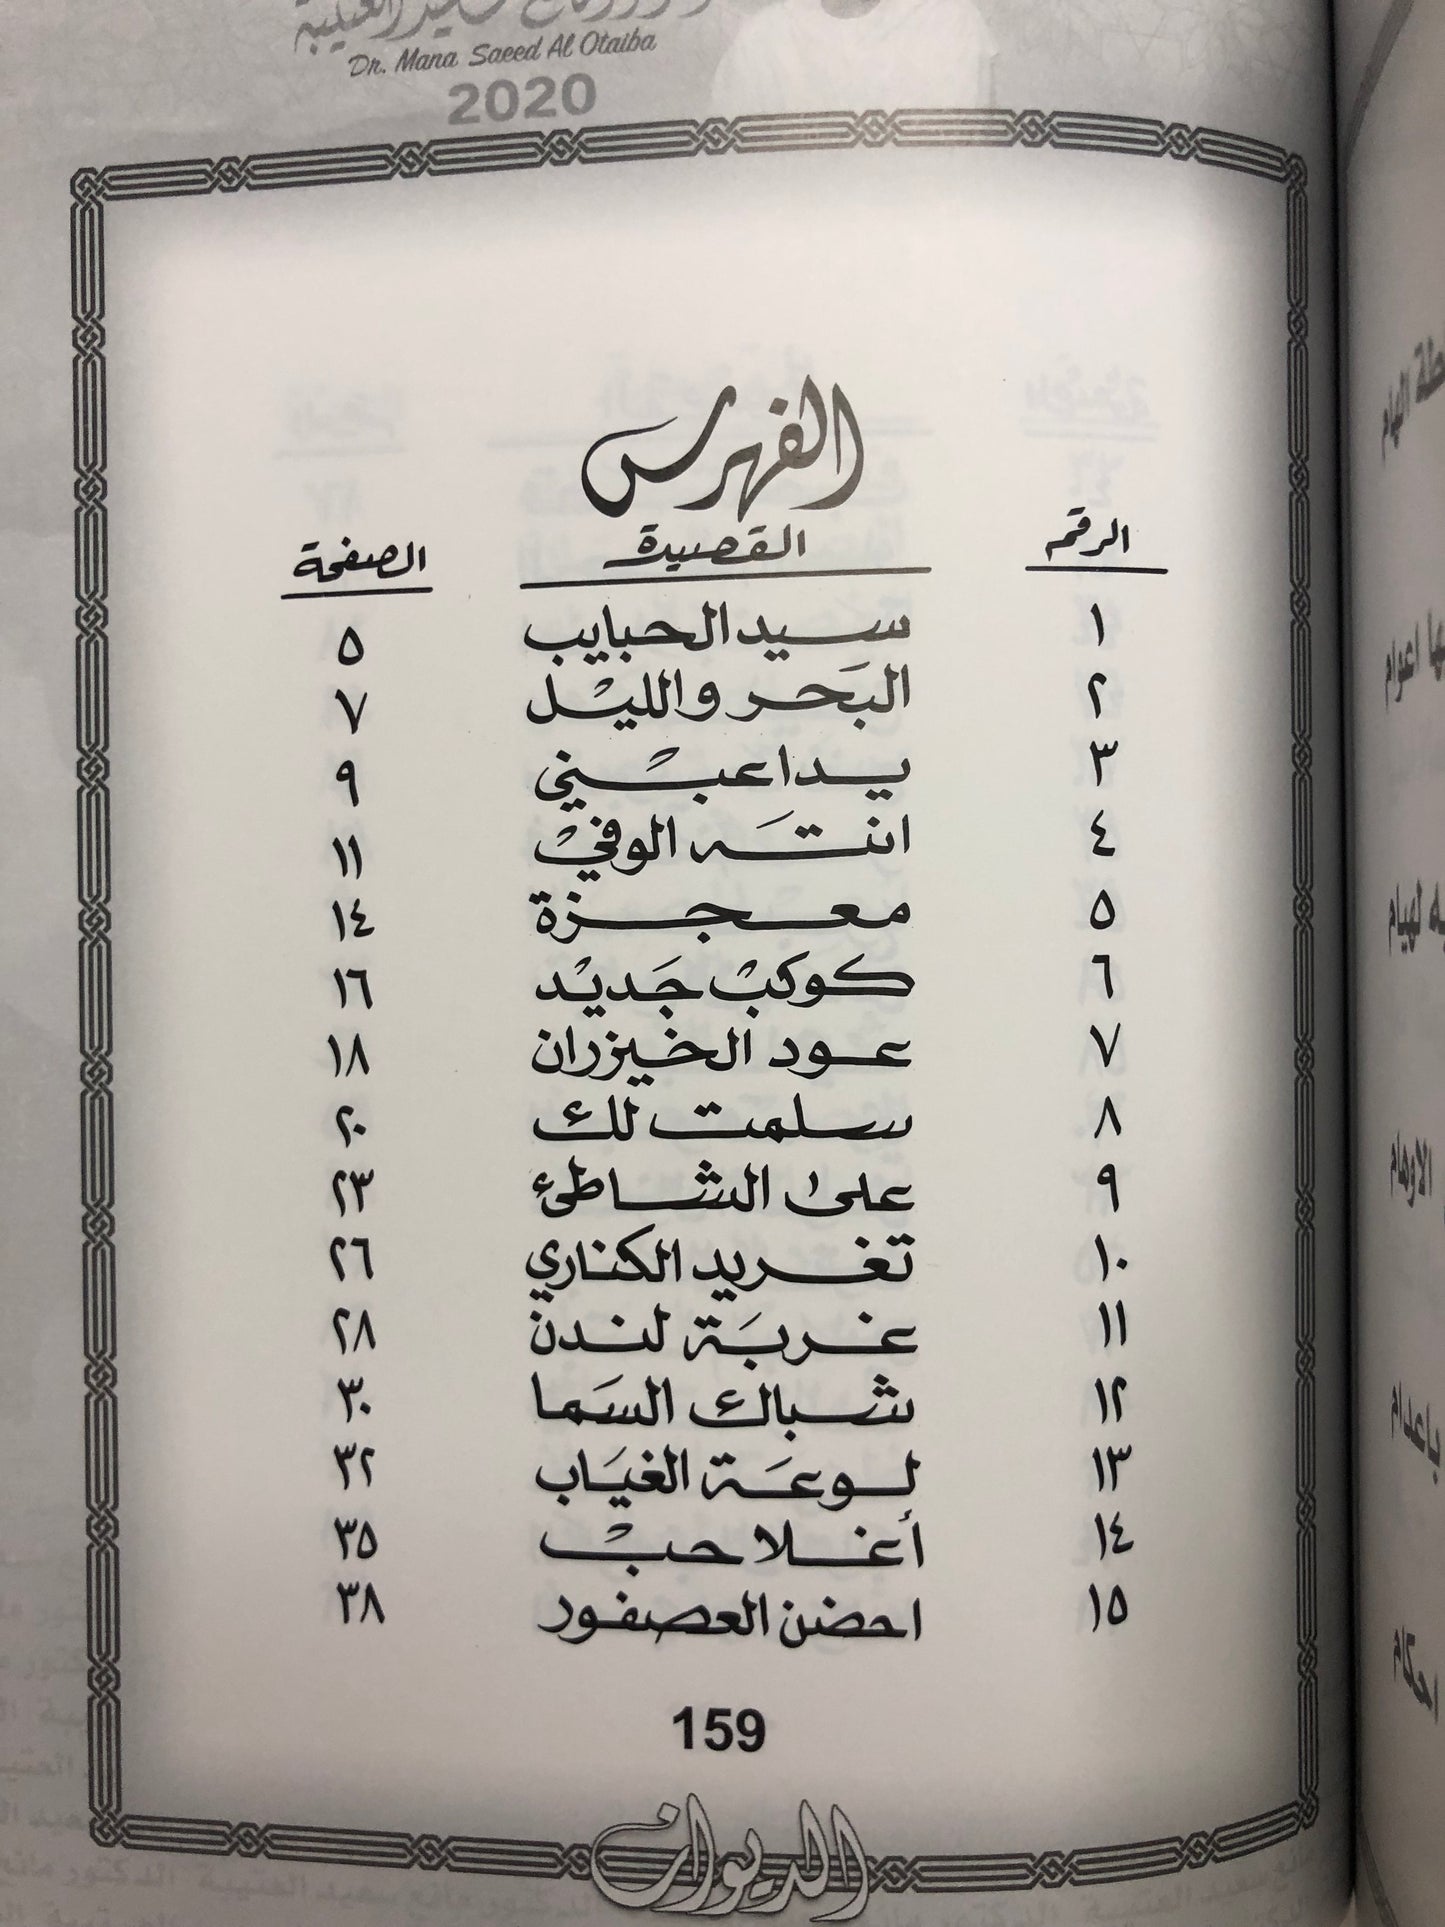 Dr. Mana Saeed Al Otaiba
2020
الفهرس
الرقم القصيدة الصفحة
١ سيد الحبايب ٥
٢ البَحر والليْل ٧
٣ يداعبْني ٩
٤ انتَه الوفيْ ١١
٥ معجزة ١٤
٦ كوكبْ جَديْد ١٦
٧ عود الخيزران ١٨
٨ سلمت لك ٢٠
٩ على الشاطئ ٢٣
١٠ تغريد الكناري ٢٦
١١ غربَة لندن ٢٨
١٢ شباك السَما ٣٠
١٣ لوعَة الغيَاب ٣٢
١٤ أغلا حبْ ٣٥
١٥ احضن العصفور ٣٨
159
الديوان
الهام
اعوام
تهيام
الاوهام
باعدام
احكام